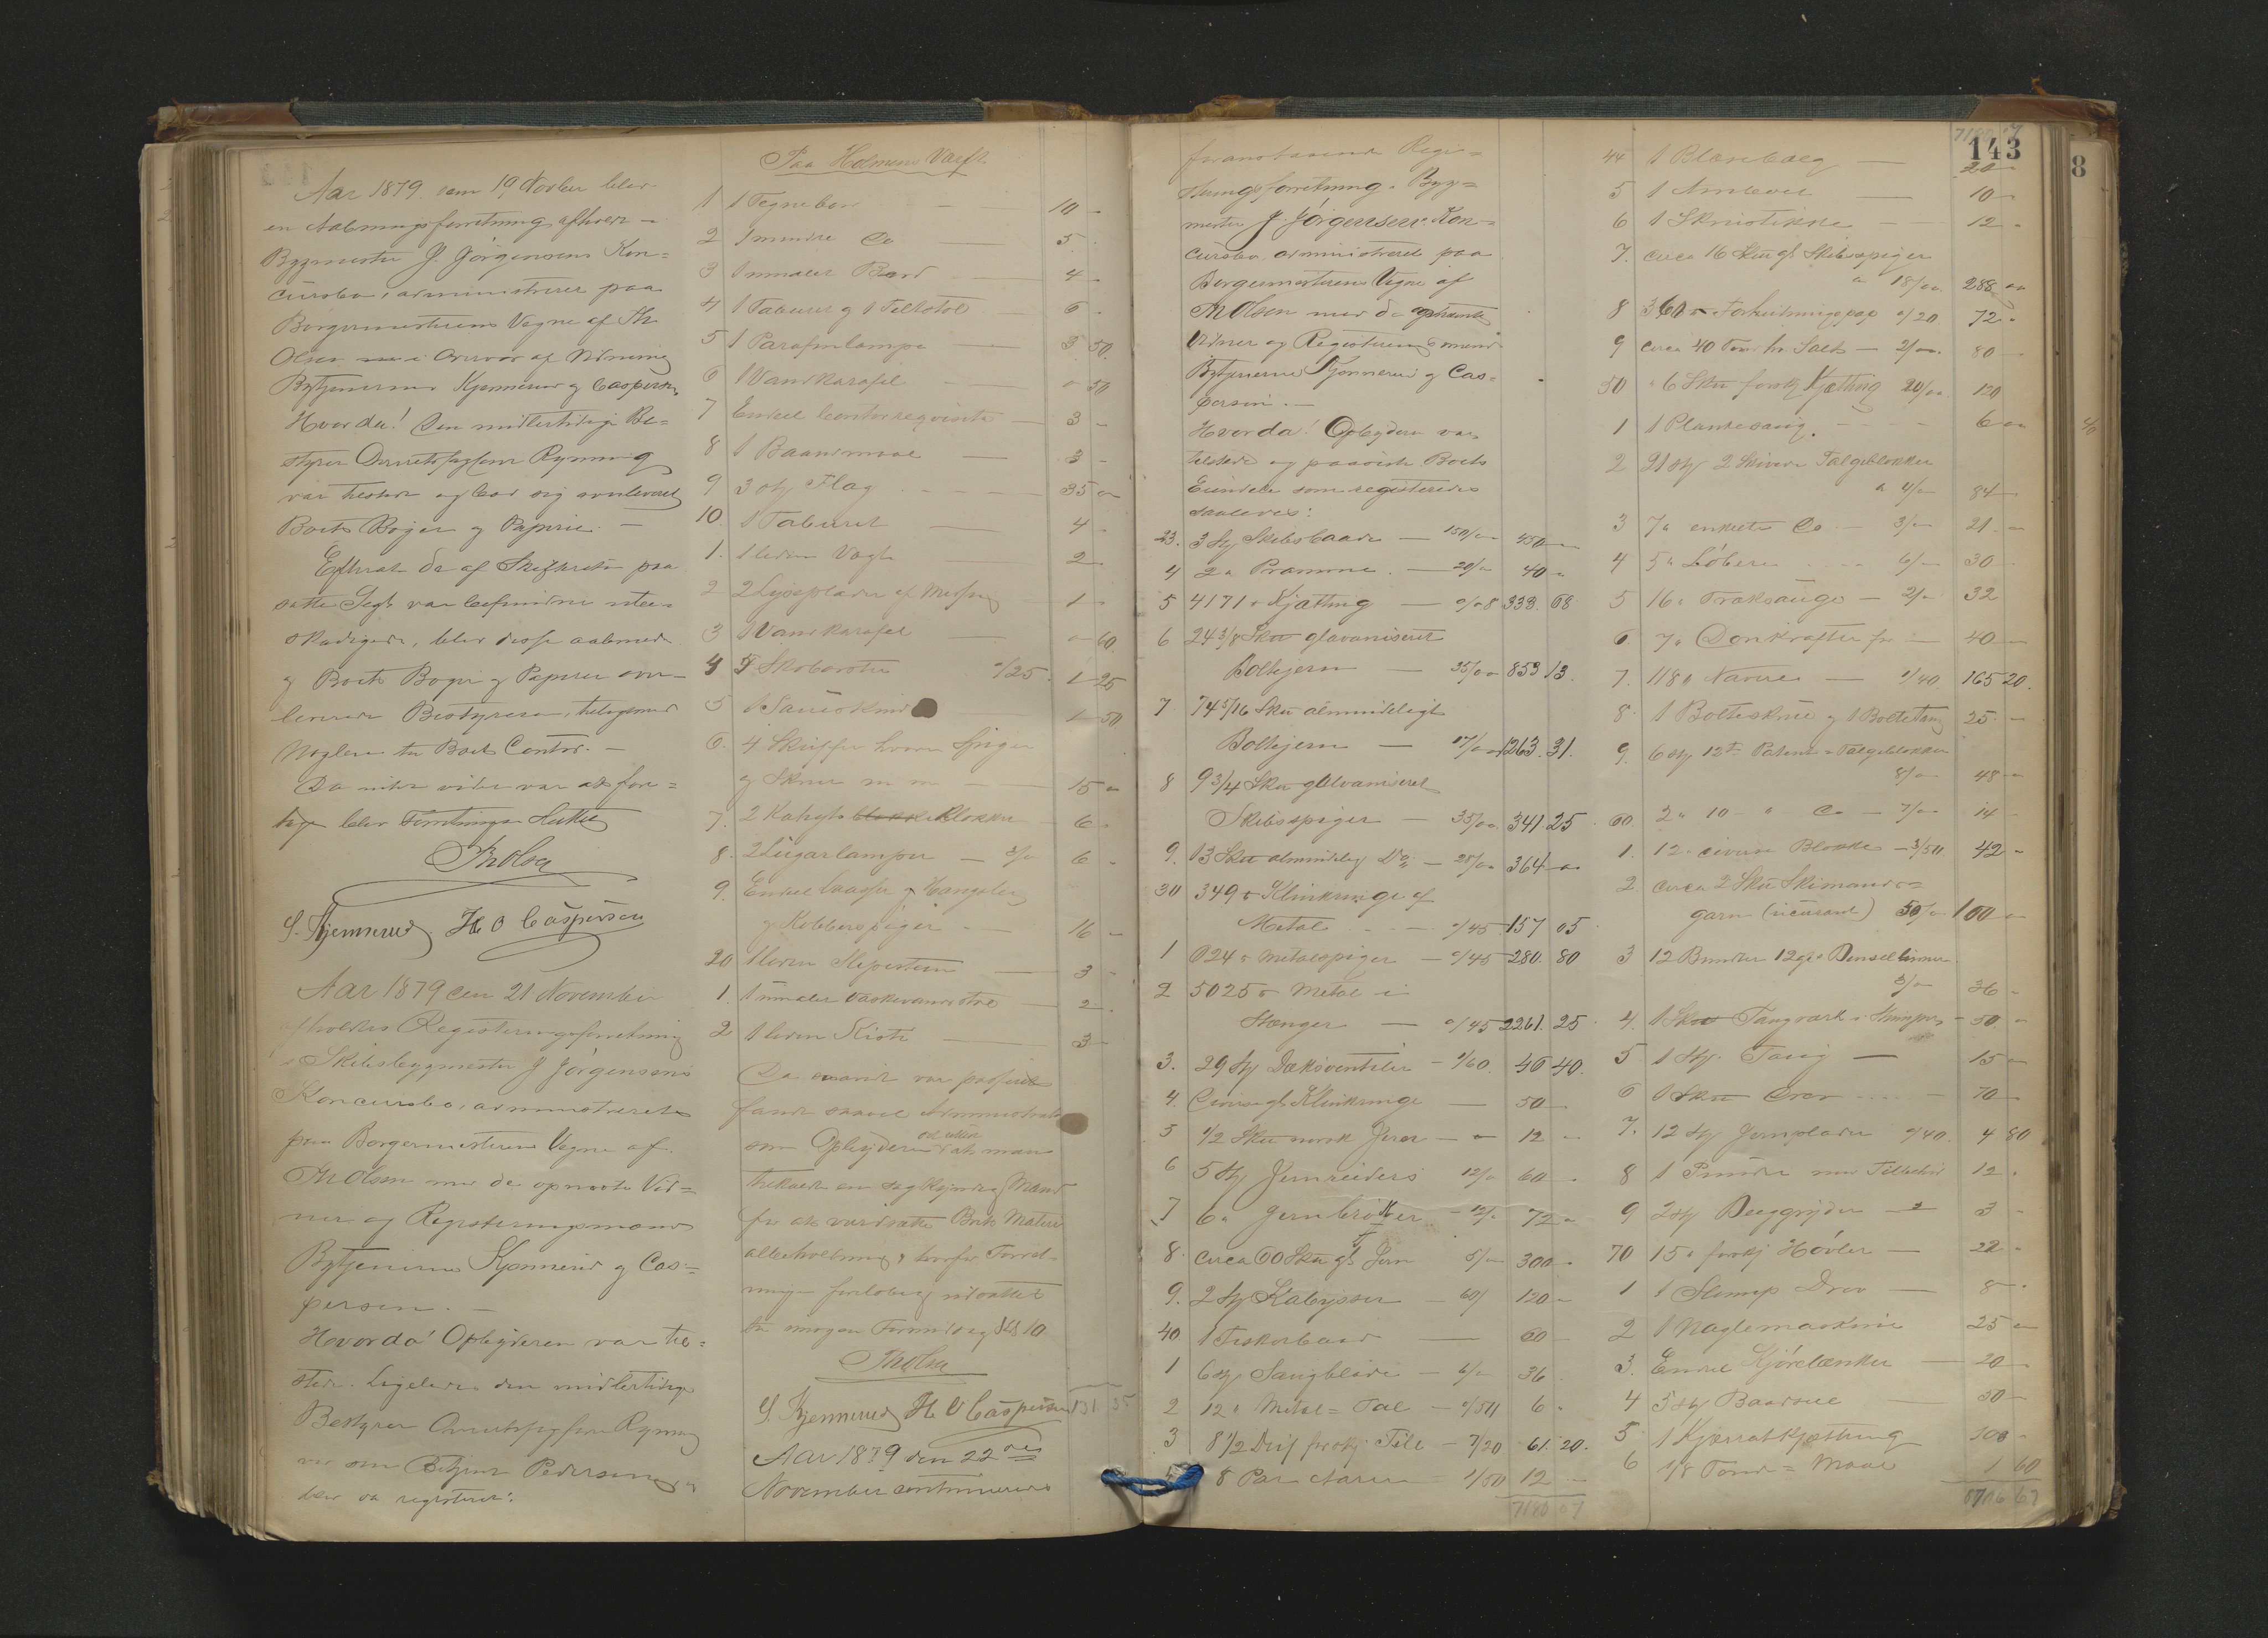 Aar 1879 den 19 Novber blev
en Aabningsforretning afholdt i
Bygmester J. Jörgensens Kon=
cursbo, administreret paa
Borgermesterens Vegne af Th
Olsen i Overvær af Vidnerne
Bytjenerne Kjennerud og Caspersen
Hvorda! Den midlertidige Be=
styrer Overretssagförer Rynning
var tilstede og lod sig overlevere
Boets Böger og Papirer. —
Efterat de af Skifteretten paa
satte Segl var befundne ube=
skadigede, blev disse aabnede
og Boets Böger og Papirer over=
leverede Bestyreren, tilligemed
Nöglen til Boets Contor. —
Da intet videre var at fore=
tage blev Forretningen sluttet
Th Olsen
S. Kjennerud H O Caspersen
Aar 1879 den 21 November
afholdtes Registeringsforretning
i Skibsbygmester J Jörgensens
Koncursbo, administreret
paa Borgermesterens Vegne af
Th Olsen med de opnævnte Vid=
ner og Registeringsmænd
Bytjenerne Kjennerud og Cas=
persen. —
Hvorda! Opbyderen var til=
stede. Ligeledes den midlertidige
Bestyrer Overretssagförer Rynning
ved Betjent Pedersen og
blev da registeret:
Paa Holmens Værft
1 1 Tegnebord — 10 -
2 1 mindre Do — 5 -
3 1 umalet Bord — 4 -
4 1 Taburet og 1 Feltstol — 6 -
5 1 Parafinlampe — 3 50
6 1 Vandkarafel — - 50
7 Endel Contorrequisita — 3 -
8 1 Baandmaal — 3 -
9 3 stk Flag — 35 -
10. 1 Taburet — 4 -
1. 1 liden Vægt 2 -
2 2 Lyseplader af Messing 1 -
3 1 Vandkarafel - 60
4 5 Skobörster °/25 1 25
5 1 Saueskind 1 50
6. 4 Skuffer hvori Spiger
og Skruer m m — 15 -
7. 2 Kahyts Klokker — 6 -
8. 2 Lugarlamper — 3/- 6 -
9. Endel Laaser og Hængsler
og Kobberspiger — 16 -
20 1 liden Slipesten — 3 -
1. 1 umalet Vaskevandsstol — 2 -
2 1 liden Kiste — 3 -
Da saavidt var passeret
fandt saavel Administrator
som Opbyderen det rettest at man
tilkaldte en sagkyndig Mand
for at værdsætte Boets Materi
albeholdning, hvorfor Forret=
ningen foreløbig udsattes
til imorgen Formiddag Kl 10
Th Olsen
S. Kjennerud H O Caspersen 131 35
Aar 1879 den 22des
November continueredes
foranstaaende Regi=
steringsforretning i Byg=
mester J. Jörgensens Kon=
cursbo, administreret paa
Borgermesterens Vegne af
Th Olsen med de opnævnte
Vidner og Registeringsmænd
Bytjenerne Kjennerud og Cas=
persen. —
Hvorda! Opbyderen var
tilstede og paaviste Boets
Eiendele som registeredes
saaledes:
23. 3 Stk Skibsbaade — 150/- 450 -
4 2 " Pramme — 20/- 40 -
5 4171 ℔ Kjætting — °/-8 333. 68
6 24 3/8 Sku galvaniseret
Boltejern — 35/- 853 13.
7 74 5/16 Sku almindeligt
Boltejern — 17/- 1263. 31.
8 9 3/4 Sku galvaniseret
Skibsspiger — 35/- 341 25
9. 13 Sku almindelig Do — 28/- 364 -
30 349 ℔ Klinkringe af
Metal — °/45 157 05
1 624 ℔ Metalspiger — °/45 280. 80
2 5025 ℔ Metal i
Stænger — °/45 2261. 25
3. 29 Stk Dæksventiler — 1/60. 46 40.
4. Diverse gl. Klinkringe — 50 -
5 1/2 Sku norsk Jern — - 12 -
6 5 Stk Jernreiders 12/- 60 -
7 6 " Jernbrökker — 12/- 72 -
8. circa 60 Sku gl. Jern 5/- 300 -
9. 2 Stk Kabysser — 60/ 120 -
40 1 Fiskerbaad — 60 -
1 6 Stk Saugblade — 6/- 36 -
2 12 " Metal = Tal — °/50 6 -
3 8 1/2 Dus. forskj. File — 7/20 61. 20.
8 Par Aarer — 1/50 12 -
7180 07
7180 07
143
44 1 Blæsebælg — 20 -
5 1 Ambolt — 10 -
6 1 Skruestikke — 12 -
7. circa 16 Sku gl Skibsspiger
a 18/-. 288 -
8 360 ℔ Forhudningspap °/20 72 -
9 circa 40 Tönder Salt — 2/-. 80 -
50 " 6 Sku forskj Kjætting 20/- 120
1 1 Plankesaug — 6 -
2 21 stk 2 Skivede Taljeblokker
a 4/- 84 -
3 7 " enkelte Do — 3/- 21 -
4 5 " Löbere — 6/- 30 -
5 16 " Træksauge — 2/- 32
6. 7 " Donkrafter — 40 -
7. 118 " Navere — 1/40 165 20.
8. 1 Bolteskrue og 1 Boltetang 25 -
9. 6 stk 12" Patent = Taljeblokker
8/- 48 -
60 2 " 10 " " Do — 7/- 14 -
1. 12 " diverse Blokke — 3/50 42 -
2 circa 2 Sku Skimands=
garn 50/- 100 -
3 12 Bundter
3/- 36 -
4. 1 Sku Taugværk i Stumper — 50 -
5 1 Stk. Taug — 15 -
6 1 Sku Drev — 70 -
7. 12 Stk Jernplader °/40. 4 80
8 1 Pumder med Tilbehör 12 -
9 2 stk Beeggryder — 3 -
70 15 " forskj Hövler — 22 -
1 1 Slump Drev — 8 -
2 1 Naglemaskine 25 -
3. Endel Kjörelænker — 20 -
4 5 stk Baadseil — 50 -
5 1 Kjerratkjætting 100 -
6 1/8 Tönde = Maal 1 60
8